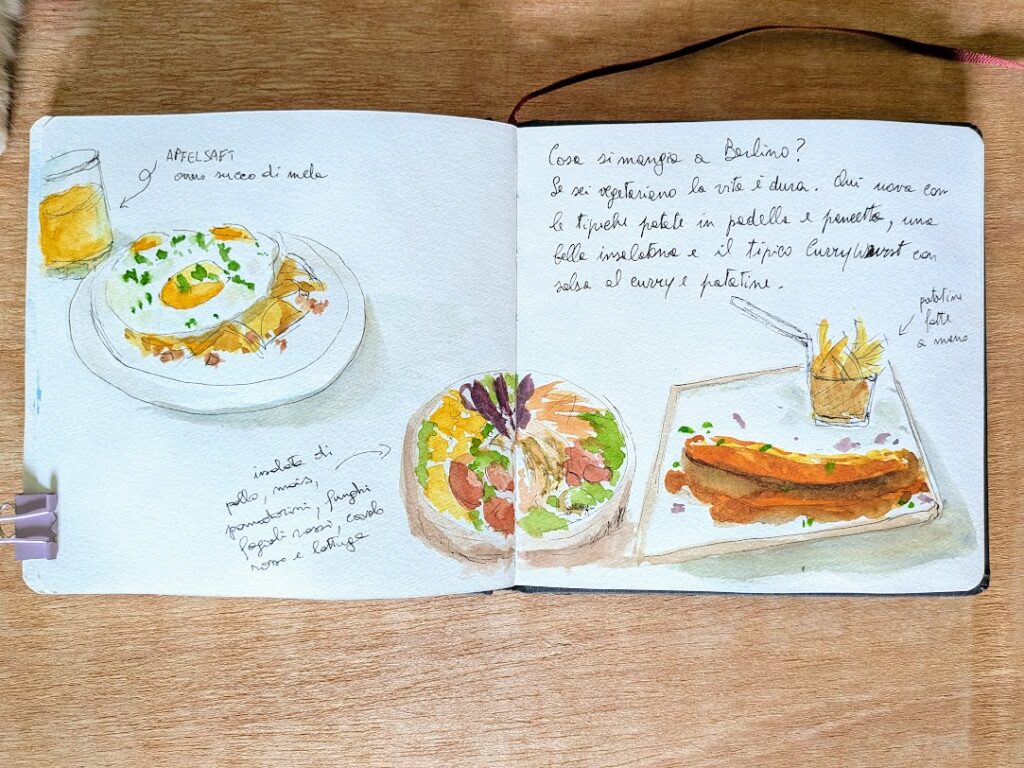 APFELSAFT
ovvero succo di mela
insalata di
pollo, mais,
pomodorini, funghi
fagioli rossi, cavolo
rosso e lattuga
Cosa si mangia a Berlino?
Se sei vegetariano la vita è dura. Qui uova con
le tipiche patate in padella e pancetta, una
bella insalatona e il tipico Currywurst con
salsa al curry e patatine.
patatine
fatte
a mano